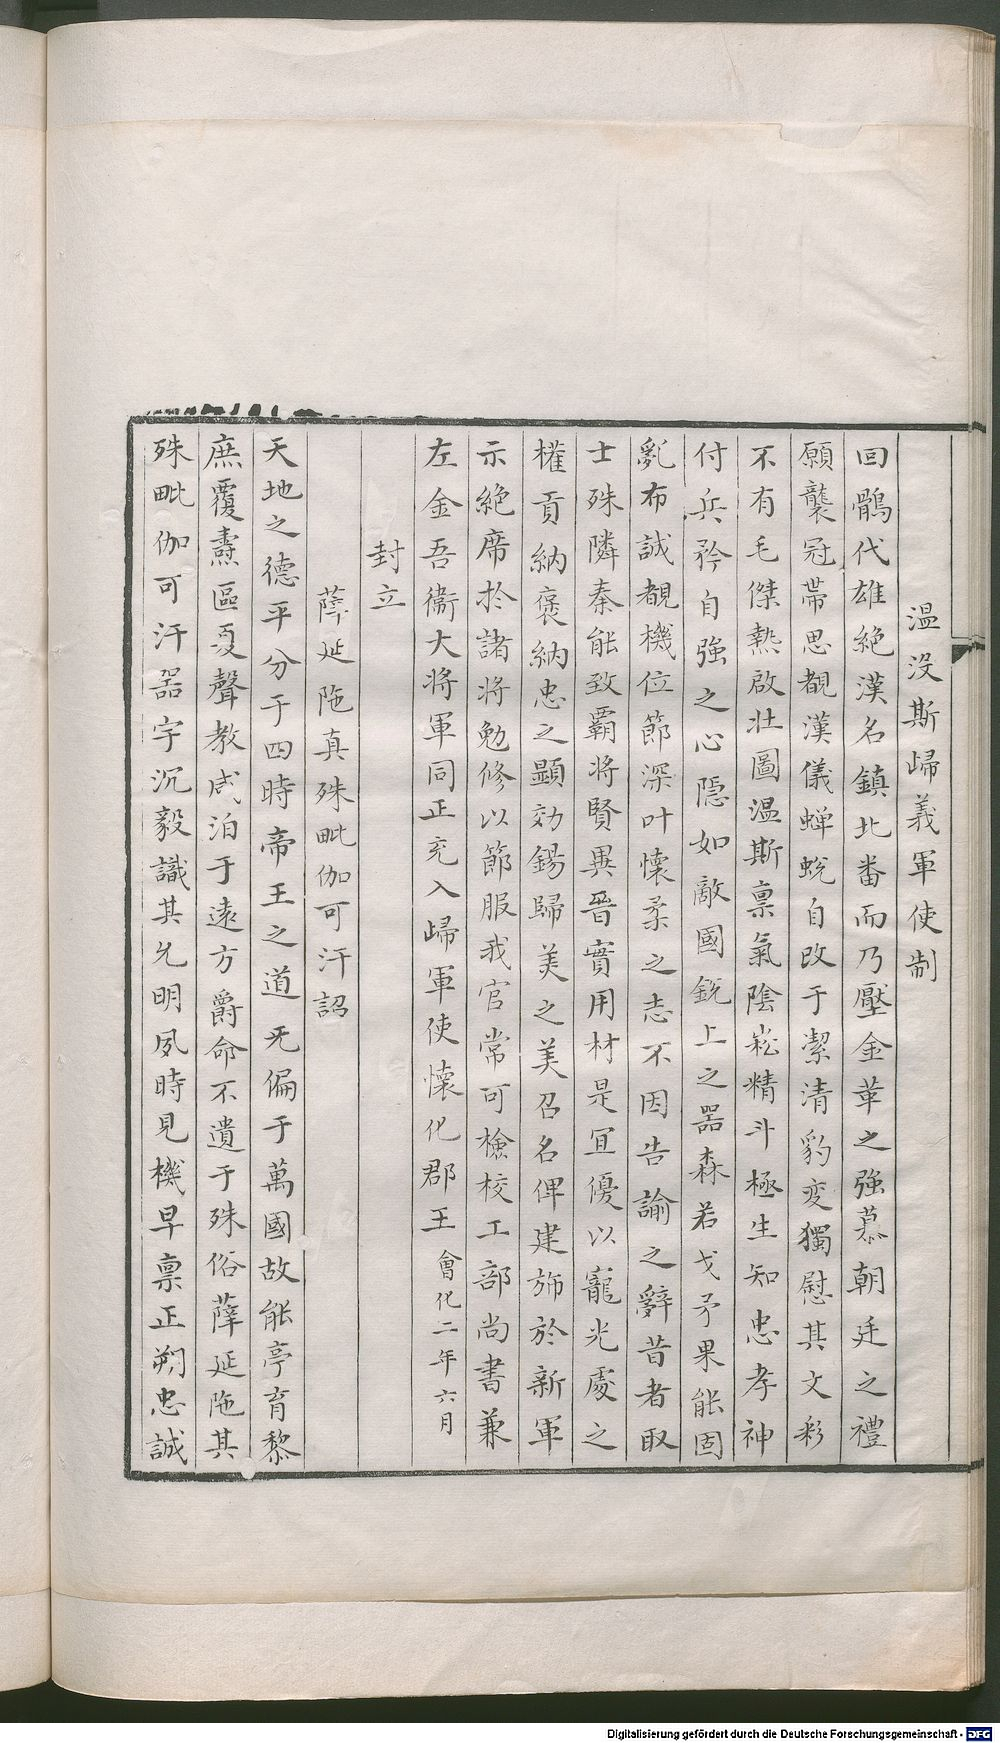 温没斯歸義軍使制
回鶻代雄絶漢名鎮北番而乃壓金革之強慕朝廷之禮
願襲冠帶思覩漢儀蟬蛻自改于潔清豹变獨慰其文彩
不有毛傑熟啟壯圖温斯禀氣陰崧精斗極生知忠孝神
付兵矜自強之心隠如敵國鋭上之器森若戈矛果能固
亂布誠覩機位節深叶懷柔之志不因告諭之辭昔者取
士殊隣秦能致霸將賢異晉實用材是冝優以寵光處之
權貢納褒納忠之顯効錫歸美之美召名俾建斾於新軍
示絶席於諸將勉修以節服我官常可檢校工部尚書兼
左金吾衛大將軍同正充入歸軍使懷化郡王會化二年六月
封立
薛延陁真殊毗伽可汗詔
天地之德平分于四時帝王之道无偏于萬國故能亭育黎
庶覆燾區夏聲教咸洎于遠方爵命不遺于殊俗薛延陁其
殊毗伽可汗器宇沉毅識其允明夙時見機早禀正朔忠誠
Digitalisierung gefördert durch die Deutsche Forschungsgemeinschaft - DFG